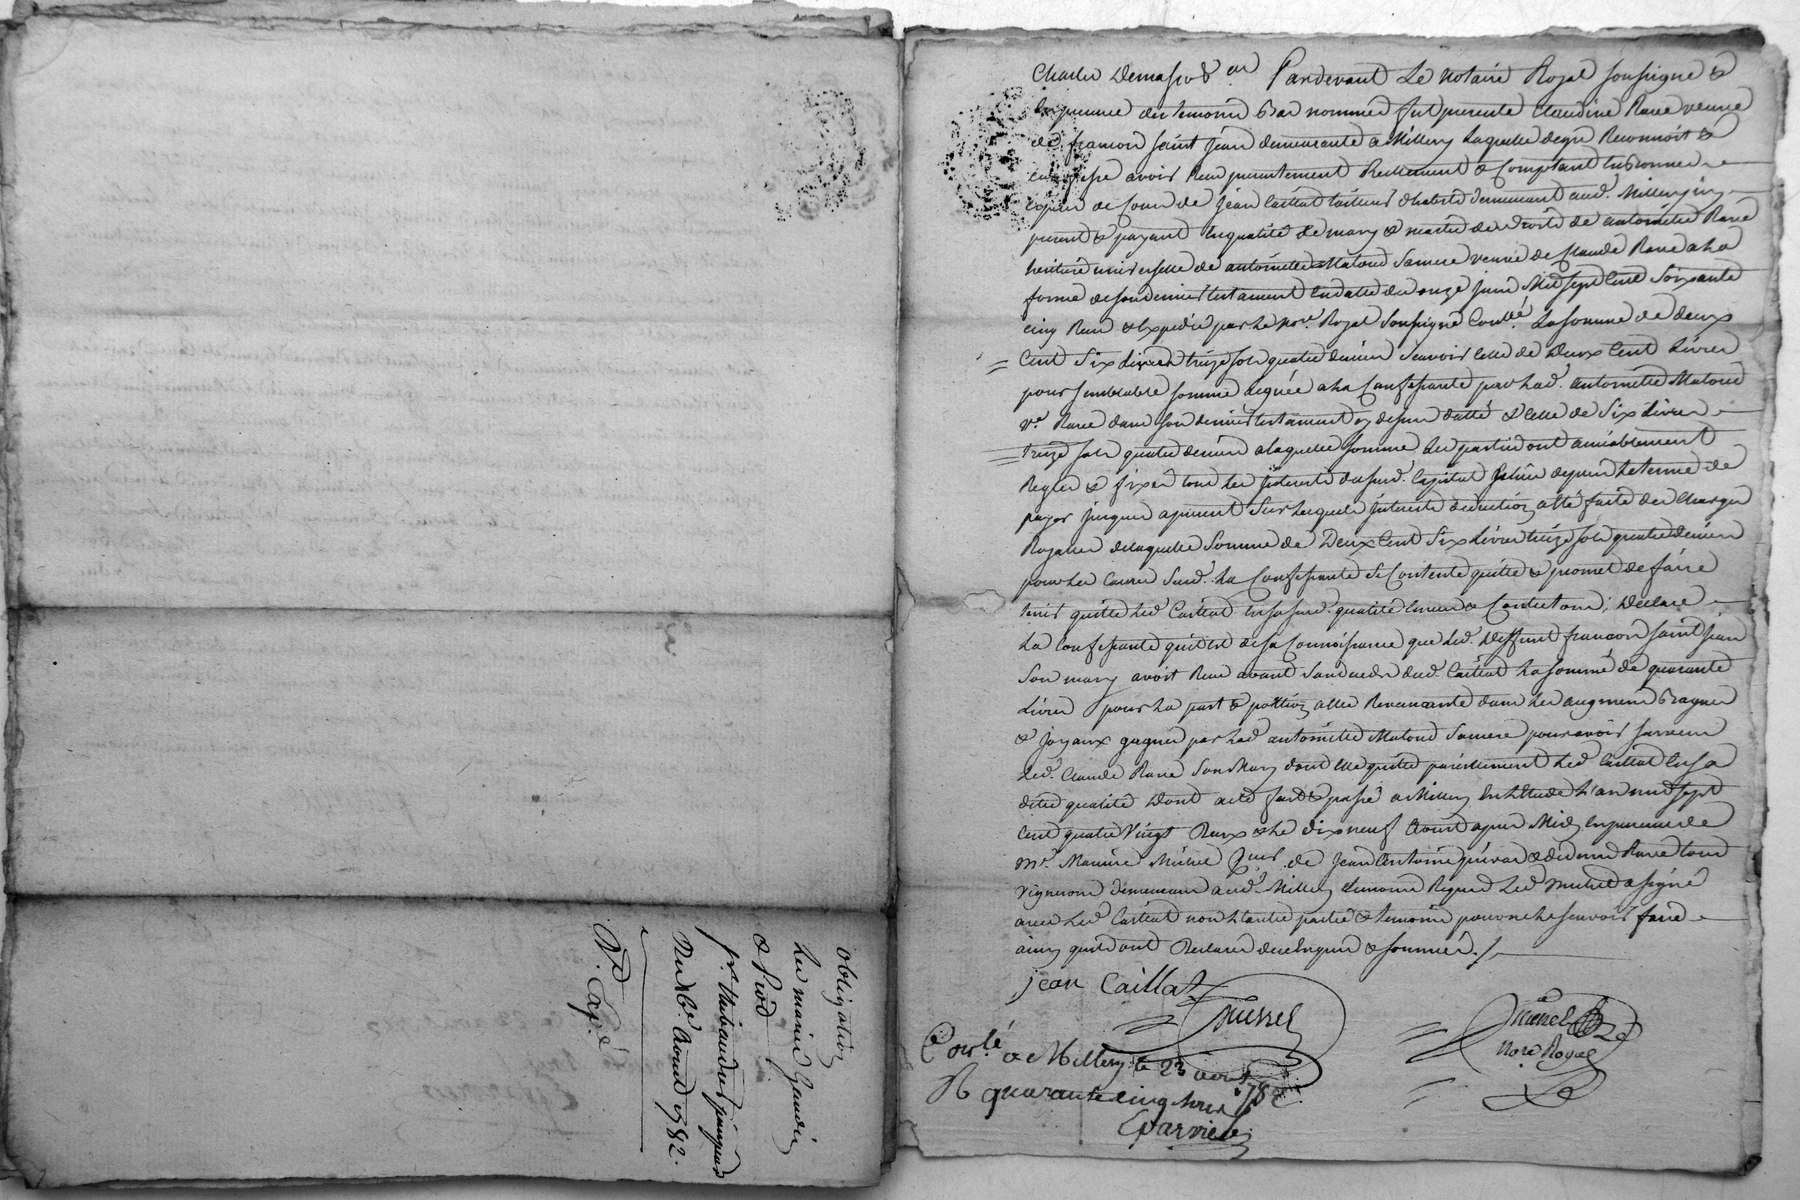 obligation
Les mariés Gaudin
& Piod
pr. thibaudier
Du 16e. Aoust 1782.
Exp.é
Pardevant Le Notaire Royal soussigné &
En presence des temoins Bas nommés fut presente Claudine Rave veuve
de françois saint jean demeurante a Millery Laquelle de gré Reconnoit &
Confesse avoir Reçu presentement Reellement & Comptant En Bonnes
Espèces de Cour de jean Caillat tailleur d'habits demeurant aud. Millery icy
present & payant En qualité de mary & maitre des droits de antoinette Rave
heritiere universelle de antoinette Matoud Sa mere veuve de Claude Rave a la
forme de son dernier testament En datte du onze juin Mil sept Cent Soixante
Cinq Reçu & Expedié par le Nore. Royal Soussigné Conllé. La somme de deux
Cent Six Livres treize sols quatre deniers Scavoir Celle de Deux Cent Livres
pour semblable somme leguée a la Confessante par lad. antoinette Matoud
Ve. Rave dans son dernier testament cy dessus datté & Celle de Six Livres
treize sols quatre deniers a laquelle somme les parties ont amiablement
Reglés & fixés tous les jnterets dususd. Capital depuis le terme de
payer jusques apresent Sur lesquels jnterets deduction a été faite des Charges
Royalles de laquelle Somme de Deux Cent Six Livres treize sols quatre deniers
pour les Causes Susd. La Confessante Se Contente quitte & promet de faire
tenir quitte led. Caillat En sa susd. qualité Envers & Contre tous; Declare
La Confessante qu'il est de sa Connoissance que led. deffunt françois saint jean
Son mary avoit Reçu avant Son deces dud. Caillat La somme de quarante
Livres pour La part & portion a Elle Revenante dans les augmens Bagues
& joyaux gagnés par lad. antoinette Matoud Sa mere pour avoir survecu
Led. Claude Rave Son Mary dont Elle quitte pareillement Led. Caillat En sa
dite qualité Dont acte fait & passé a Millery En L'Etude L'an mil sept
Cent quatre Vingt Deux & le dix neuf Aoust apres Midy En presence de
de jean Antoine & Rave tous
Vignerons demeurans aud. Millery temoins Requis Led. a signé
avec led. Caillat non L'autre partie & temoins pour ne le scavoir faire
ainsy qu'ils ont Declarés de ce Enquis & sommés.
jean Caillat
Nore Royal
Conllé a Millery le 23 aout 1782
R quarante cinq sols